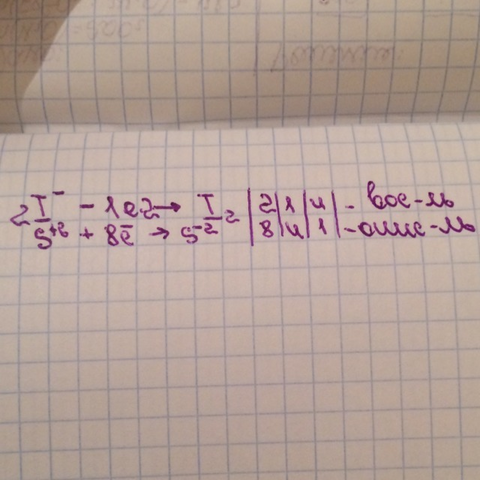 2I⁻ - 1e2 → I2 | 2 | 1 | 4 | - вос-ль
S⁺⁶ + 8ē → S⁻² | 8 | 4 | 1 | - окис-ль